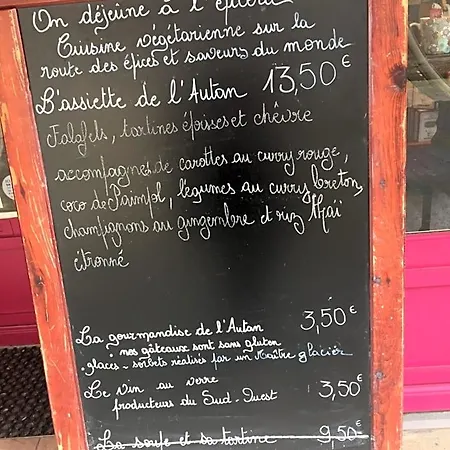 On déjeune à l'épicerie
Cuisine végétarienne sur la
route des épices et saveurs du monde
L'assiette de l'Autan 13,50€
Falafels, tartines époisses et chèvre
accompagnés de carottes au curry rouge,
coco de Paimpol, légumes au curry breton,
champignons au gingembre et riz thaï
citronné
La gourmandise de l'Autan 3,50€
• nos gâteaux sont sans gluten
• glaces - sorbets réalisés par un Maître glacier
Le vin au verre 3,50€
producteurs du Sud-Ouest
La soupe et sa tartine 9,50€